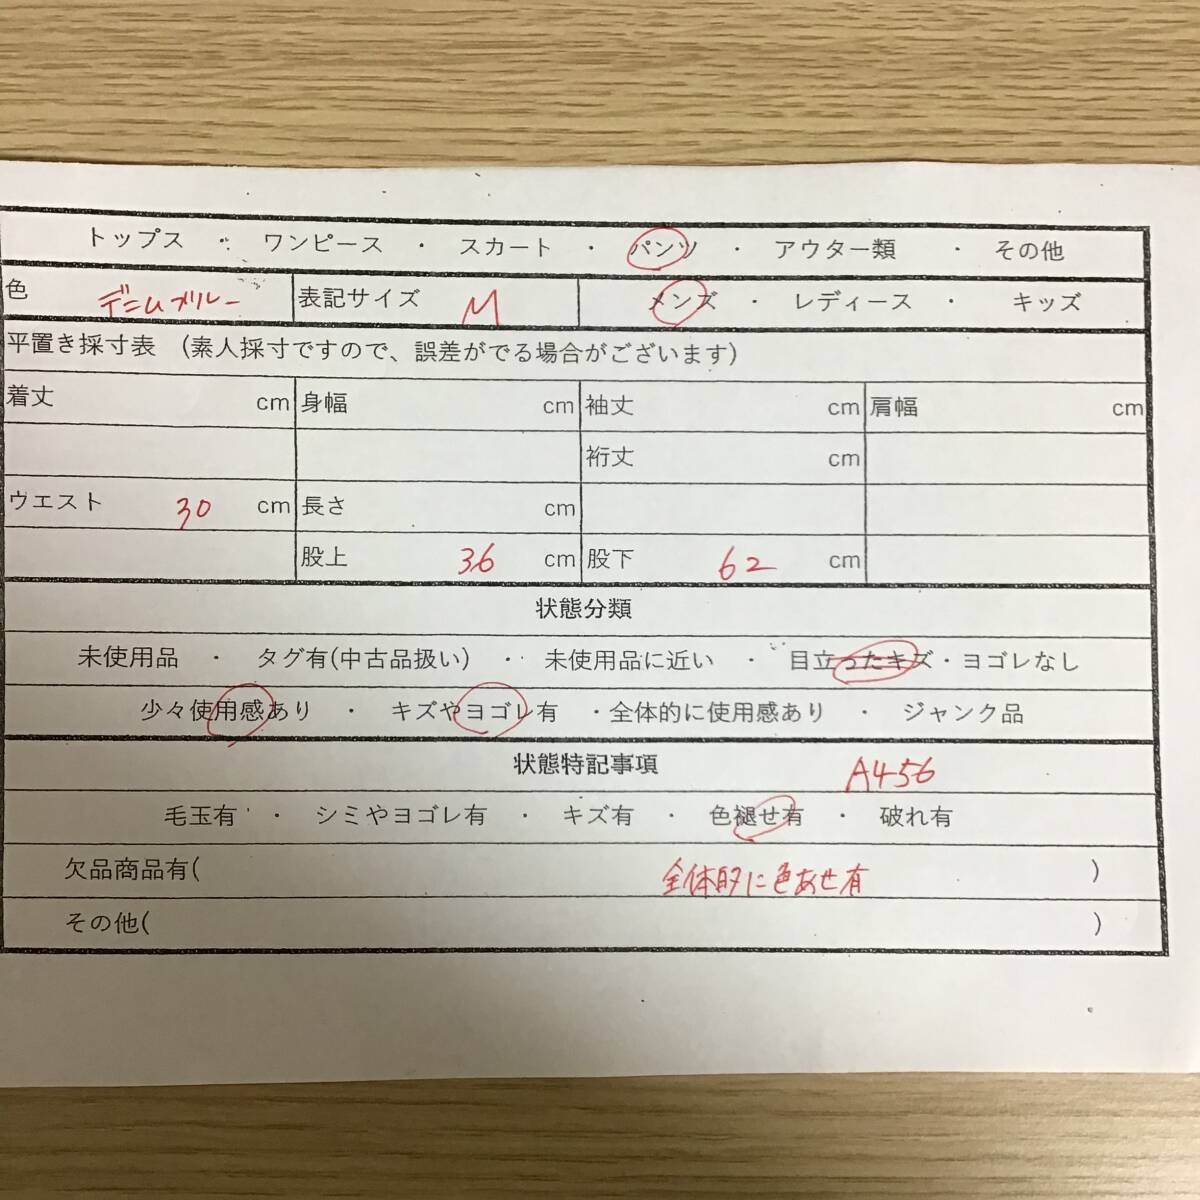 トップス ・ ワンピース ・ スカート ・ パンツ ・ アウター類 ・ その他
色 デニムブルー 表記サイズ M メンズ ・ レディース ・ キッズ
平置き採寸表 (素人採寸ですので、誤差がでる場合がございます)
着丈 cm 身幅 cm 袖丈 cm 肩幅 cm
裄丈 cm
ウエスト 30 cm 長さ cm
股上 36 cm 股下 62 cm
状態分類
未使用品 ・ タグ有(中古品扱い) ・ 未使用品に近い ・ 目立ったキズ・ヨゴレなし
少々使用感あり ・ キズやヨゴレ有 ・全体的に使用感あり ・ ジャンク品
状態特記事項 A456
毛玉有 ・ シミやヨゴレ有 ・ キズ有 ・ 色褪せ有 ・ 破れ有
欠品商品有( 全体的に色あせ有 )
その他( )